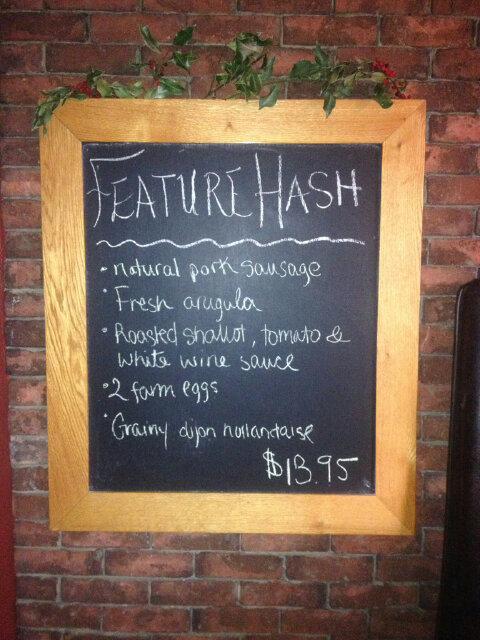 FEATURE HASH
• natural pork sausage
• Fresh arugula
• Roasted shallot, tomato &
white wine sauce
• 2 farm eggs
• Grainy dijon hollandaise
$13.95